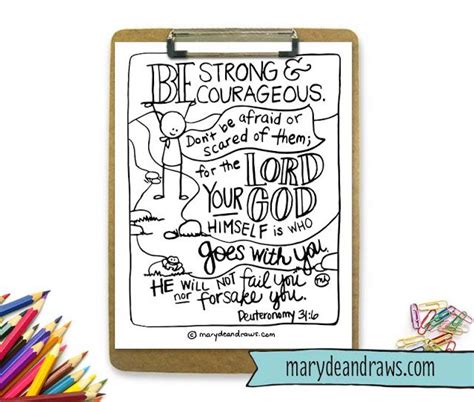 BE STRONG &
COURAGEOUS.
Don't be afraid or
scared of them;
for the LORD
YOUR GOD
HIMSELF is WHO
goes with you.
HE WILL NOT fail you
nor forsake you.
Deuteronomy 31:6
© marydeandraws.com
marydeandraws.com